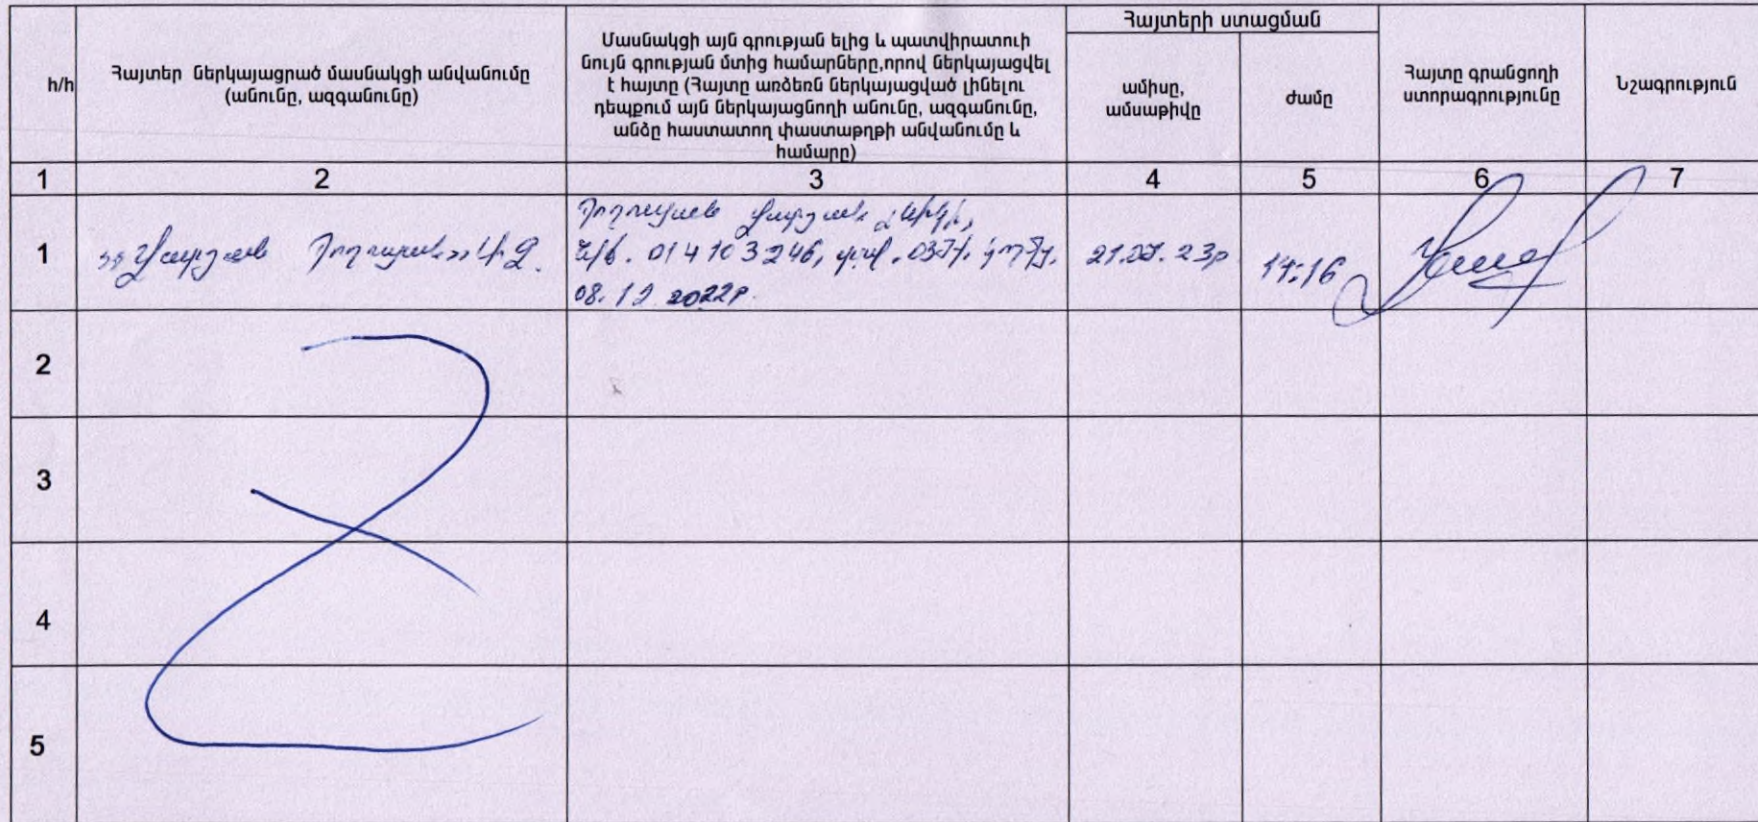 հ/հ
Հայտեր ներկայացրած մասնակցի անվանումը
(անունը, ազգանունը)
Մասնակցի այն գրության ելից և պատվիրատուի
նույն գրության մտից համարները,որով ներկայացվել
է հայտը (Հայտը առձեռն ներկայացված լինելու
դեպքում այն ներկայացնողի անունը, ազգանունը,
անձը հաստատող փաստաթղթի անվանումը և
համարը)
Հայտերի ստացման
ամիսը,
ամսաթիվը
ժամը
Հայտը գրանցողի
ստորագրությունը
Նշագրություն
1 2 3 4 5 6 7
1
014103246,
08.12.2022թ.
14:16
2
3
4
5